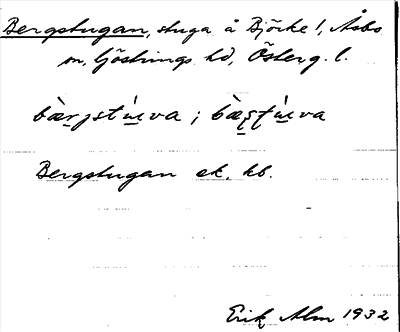 Bergstugan, stuga å Björke 1, Åsbo
sn, Göstrings hd, Österg. l.
bær̲jstɯ̀va ; bæ̀ʂʈɯ̀va
Bergstugan ek. kb.
Erik Alm 1932